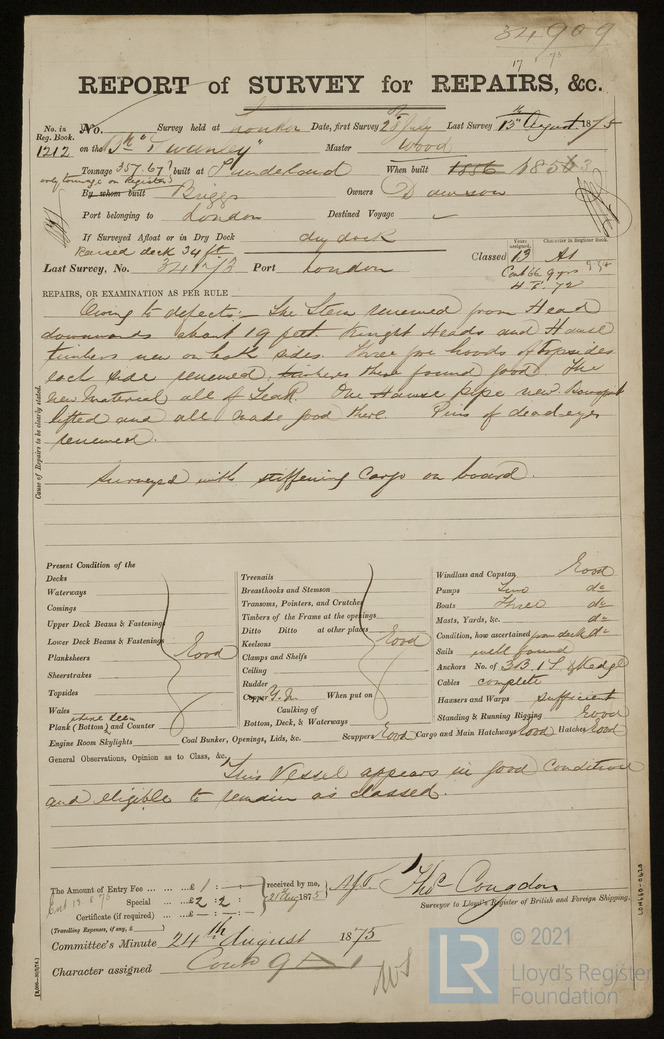 34909
17 75
REPORT of SURVEY for REPAIRS, &c.
No. in Reg. Book. No. Survey held at London Date, first Survey 28 July Last Survey 13th August 1875
1212 on the Bk "Twanley" Master Wood
Tonnage 357.67 built at Sunderland When built 1856 1853
only tonnage on Register
By whom built Briggs Owners Dawson
Port belonging to London Destined Voyage
If Surveyed Afloat or in Dry Dock dry dock
Raised deck 34 ft
Years assigned. Character in Register Book.
Classed 13 A1
Last Survey, No. Port London
Cont 66 9 yrs
REPAIRS, OR EXAMINATION AS PER RULE
Owing to defects:- The Stem renewed from Head
downwards about 19 feet. Knight Heads and Hawse
timbers new on both sides. Three fore hoods of topsides
each side renewed, timbers there found good. The
new material all of Teak. One Hawse pipe new Bowsprit
lifted and all made good there. Pins of deadeyes
renewed.
Surveyed with stiffening Cargo on board.
Cause of Repairs to be clearly stated.
Present Condition of the
Decks
Waterways
Comings
Upper Deck Beams & Fastenings
Lower Deck Beams & Fastenings
Plansheers
Sheerstrakes
Topsides
Wales
Plank (Bottom) and Counter
Good
Engine Room Skylights Coal Bunker, Openings, Lids, &c. Scuppers Good Cargo and Main Hatchways Good Hatches Good
Treenails
Breasthooks and Stemson
Transoms, Pointers, and Crutches
Timbers of the Frame at the openings
Ditto Ditto at other places
Keelsons
Clamps and Shelfs
Ceiling
Rudder
Copper Y.M. When put on
Caulking of
Bottom, Deck, & Waterways
Good
Windlass and Capstan Good
Pumps Two do
Boats Three do
Masts, Yards, &c. do
Condition, how ascertained from deck do
Sails well found
Anchors No. of 3B. 1S. & Kedge
Cables complete
Hawsers and Warps sufficient
Standing & Running Rigging Good
General Observations, Opinion as to Class, &c.
This Vessel appears in good condition
and eligible to remain as classed.
The Amount of Entry Fee ... £ 1 : - : -
Special ... £ 2 : 2 : -
Certificate (if required) ... £ - : - : -
(Travelling Expenses, if any, £ )
received by me,
21st Aug 1875
Thos Congdon
Surveyor to Lloyd's Register of British and Foreign Shipping.
Committee's Minute 24th August 1875
Character assigned Cont 9 A1
LON660-0620
© 2021
LR Lloyd's Register
Foundation